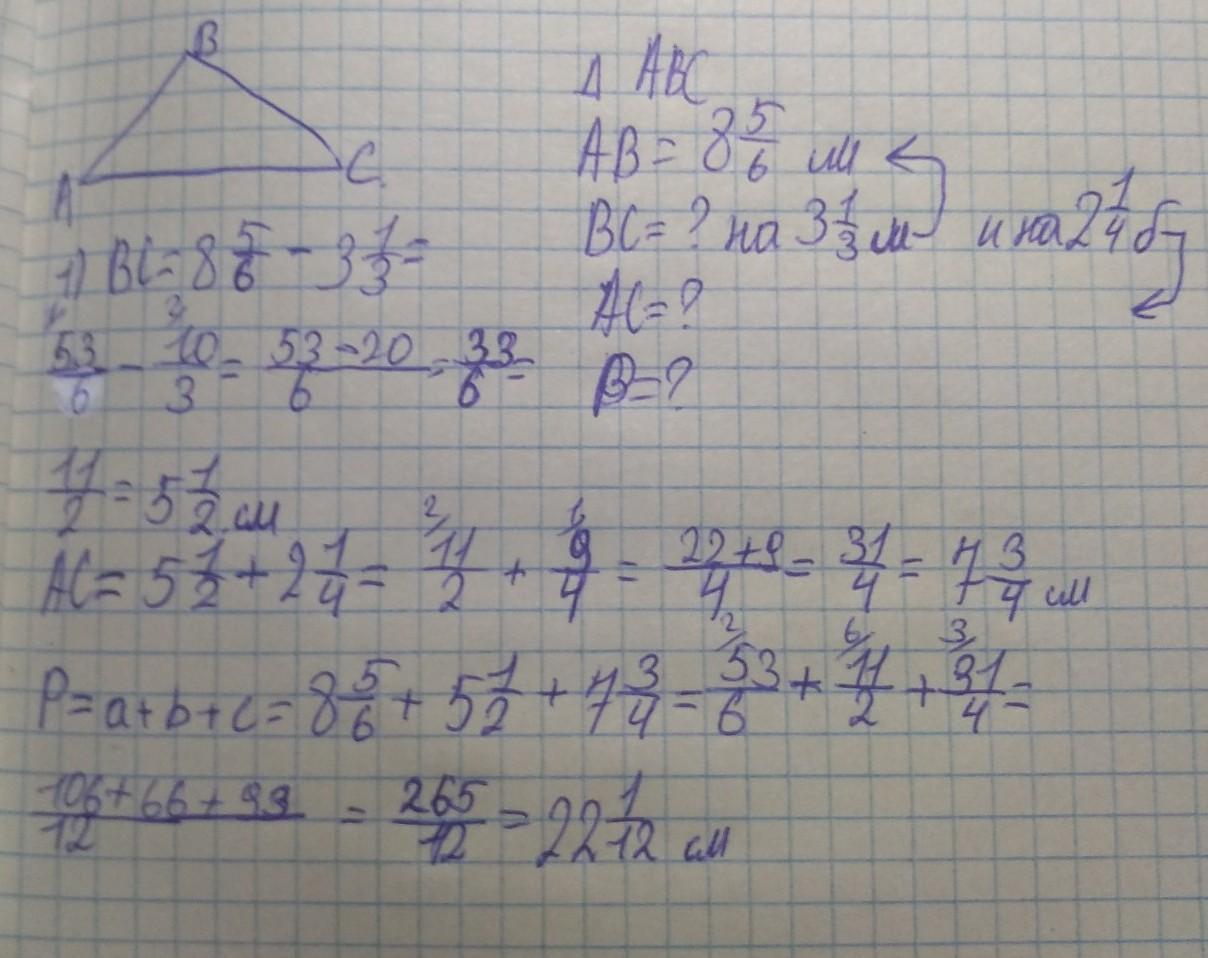 B
A
C
Δ ABC
AB = 8 5/6 см
BC = ? на 3 1/3 м и на 2 1/4 б
AC = ?
P = ?
1) BC = 8 5/6 - 3 1/3 =
53/6 - 10/3 = (53 - 20)/6 = 33/6 =
11/2 = 5 1/2 см
AC = 5 1/2 + 2 1/4 = 2/ 11/2 + 1/ 9/4 = (22 + 9)/4 = 31/4 = 7 3/4 см
P = a + b + c = 8 5/6 + 5 1/2 + 7 3/4 = 2/ 53/6 + 6/ 11/2 + 3/ 31/4 =
(106 + 66 + 93)/12 = 265/12 = 22 1/12 см